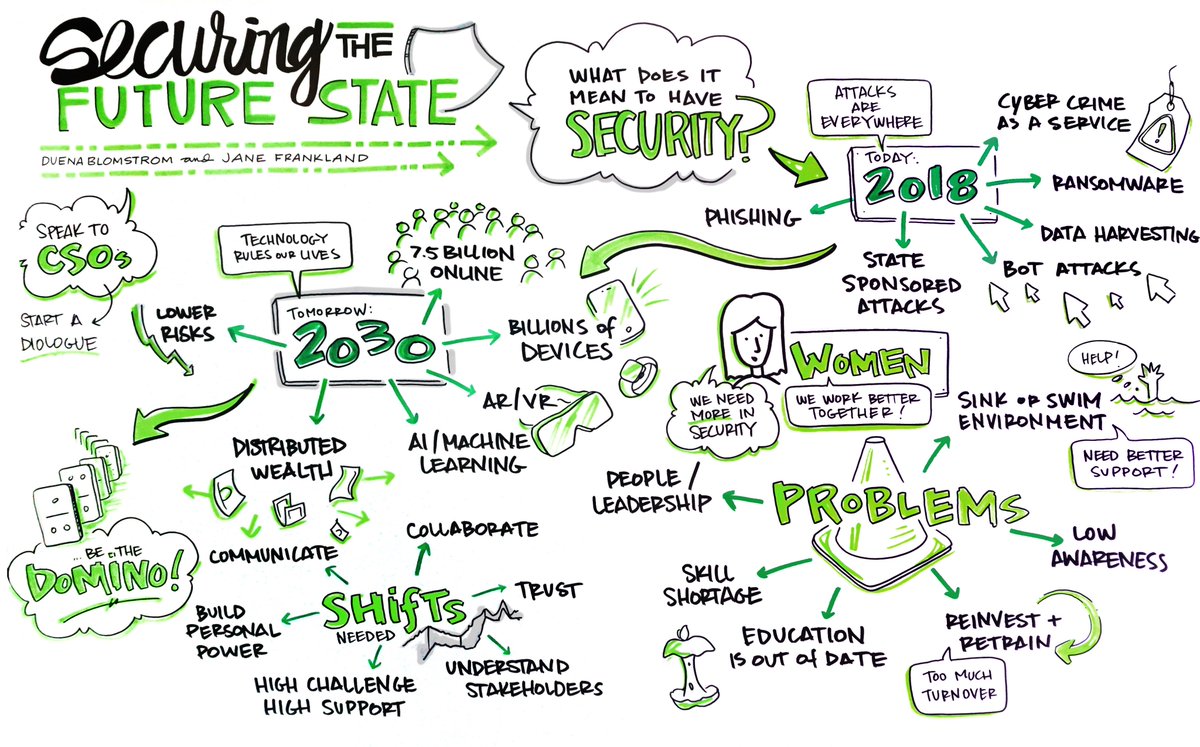 SECURING THE
FUTURE STATE
DUENA BLOMSTROM and JANE FRANKLAND
WHAT DOES IT
MEAN TO HAVE
SECURITY?
ATTACKS
ARE
EVERYWHERE
TODAY:
2018
CYBER CRIME
AS A SERVICE
RANSOMWARE
DATA HARVESTING
BOT ATTACKS
STATE
SPONSORED
ATTACKS
PHISHING
SPEAK TO
CSOs
START A
DIOLOGUE
TECHNOLOGY
RULES OUR LIVES
TOMORROW:
2030
7.5 BILLION
ONLINE
BILLIONS of
DEVICES
AR/VR
AI/MACHINE
LEARNING
DISTRIBUTED
WEALTH
LOWER
RISKS
... BE THE
DOMINO!
SHIFTS
NEEDED
COMMUNICATE
COLLABORATE
TRUST
UNDERSTAND
STAKEHOLDERS
HIGH CHALLENGE
HIGH SUPPORT
BUILD
PERSONAL
POWER
WOMEN
WE NEED
MORE IN
SECURITY
WE WORK BETTER
TOGETHER!
PROBLEMS
PEOPLE/
LEADERSHIP
SINK or SWIM
ENVIRONMENT
HELP!
NEED BETTER
SUPPORT!
LOW
AWARENESS
REINVEST +
RETRAIN
TOO MUCH
TURNOVER
EDUCATION
IS OUT of DATE
SKILL
SHORTAGE